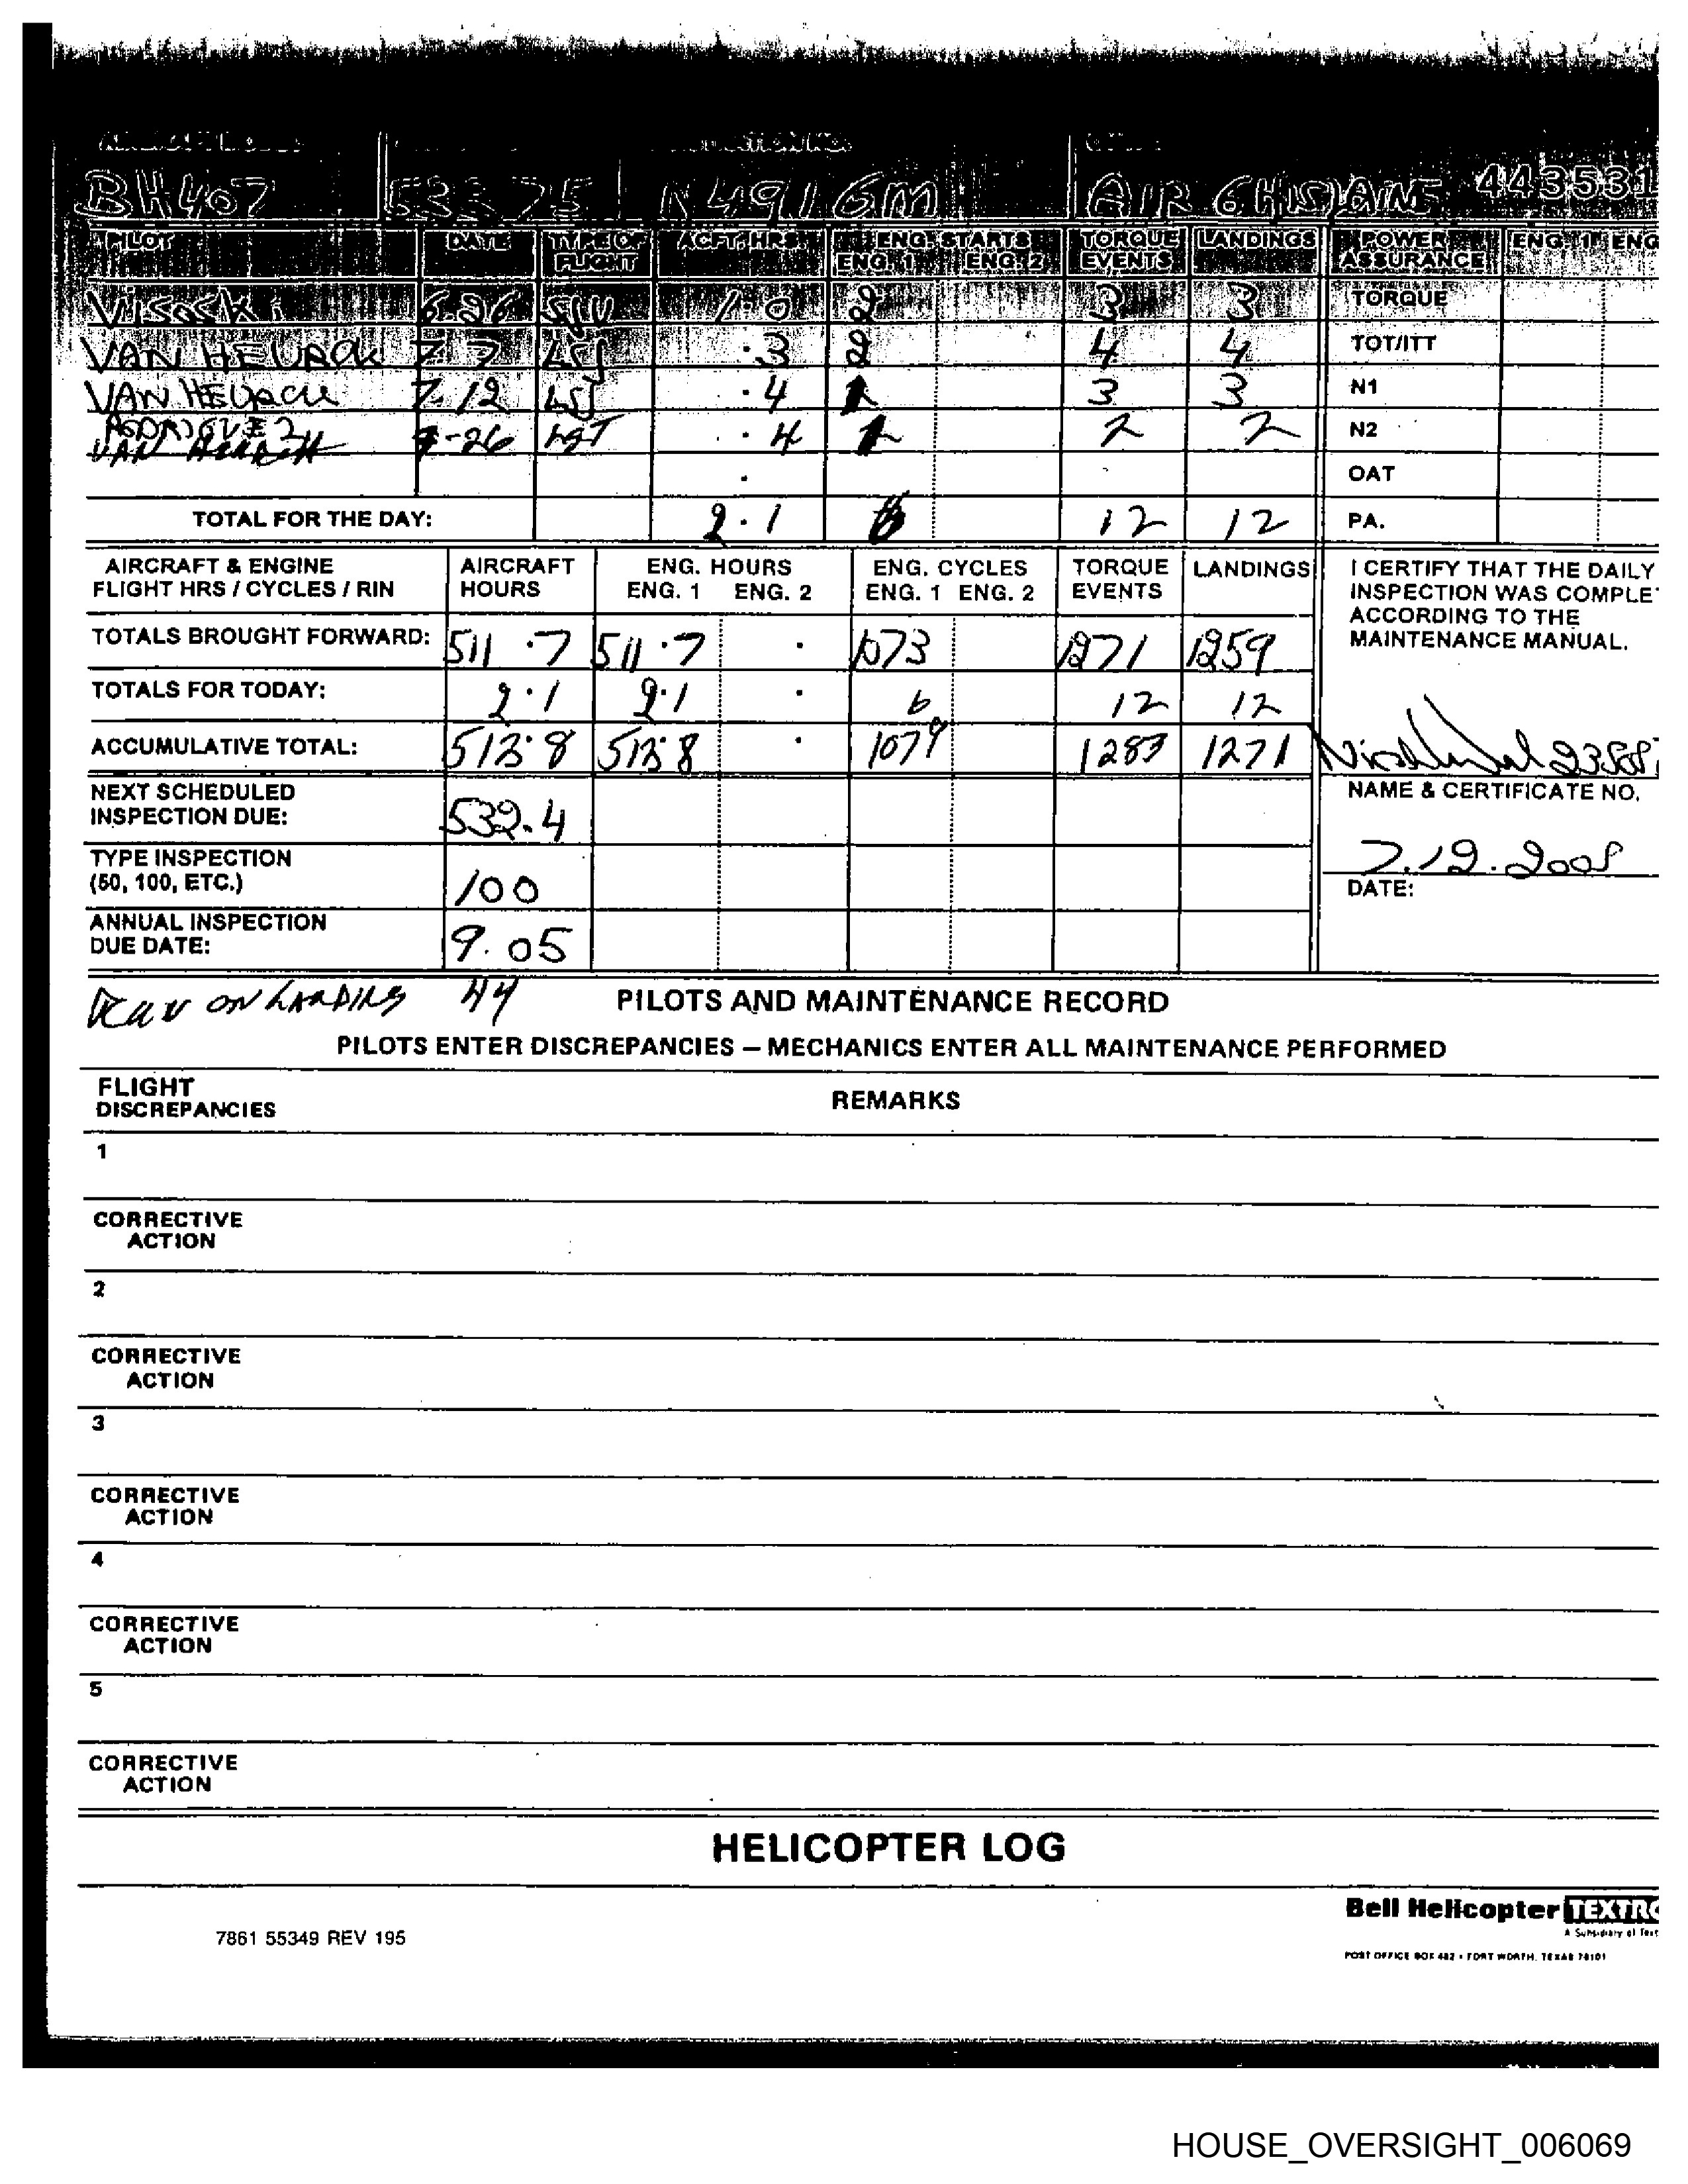 BH407 53375 N491GM AIR GHISLAINE 443531
PILOT DATE TYPE OF FLIGHT ACFT. HRS ENG. STARTS ENG. 1 ENG. 2 TORQUE EVENTS LANDINGS POWER ASSURANCE ENG 1 ENG
Visoski 6.26 1.0 2 3 3 TORQUE
VAN HEURCK 7-7 .3 2 4 4 TOT/ITT
VAN HEURCK 7-12 .4 3 3 N1
RODRIGUEZ
-26 .4 2 2 N2
. OAT
TOTAL FOR THE DAY: 2.1 12 12 PA.
AIRCRAFT & ENGINE AIRCRAFT ENG. HOURS ENG. CYCLES TORQUE LANDINGS I CERTIFY THAT THE DAILY
FLIGHT HRS / CYCLES / RIN HOURS ENG. 1 ENG. 2 ENG. 1 ENG. 2 EVENTS INSPECTION WAS COMPLE
ACCORDING TO THE
TOTALS BROUGHT FORWARD: 511.7 511.7 . 1073 1271 1259 MAINTENANCE MANUAL.
TOTALS FOR TODAY: 2.1 2.1 . 6 12 12
ACCUMULATIVE TOTAL: 513.8 513.8 . 1079 1283 1271
NEXT SCHEDULED NAME & CERTIFICATE NO.
INSPECTION DUE: 532.4
TYPE INSPECTION 7.12.2005
(50, 100, ETC.) 100 DATE:
ANNUAL INSPECTION
DUE DATE: 9.05
ON LANDING PILOTS AND MAINTENANCE RECORD
PILOTS ENTER DISCREPANCIES – MECHANICS ENTER ALL MAINTENANCE PERFORMED
FLIGHT
DISCREPANCIES REMARKS
1
CORRECTIVE
ACTION
2
CORRECTIVE
ACTION
3
CORRECTIVE
ACTION
4
CORRECTIVE
ACTION
5
CORRECTIVE
ACTION
HELICOPTER LOG
Bell Helicopter TEXTRO
A Subsidiary of Text
7861 55349 REV 195
POST OFFICE BOX 482 • FORT WORTH, TEXAS 76101
HOUSE_OVERSIGHT_006069